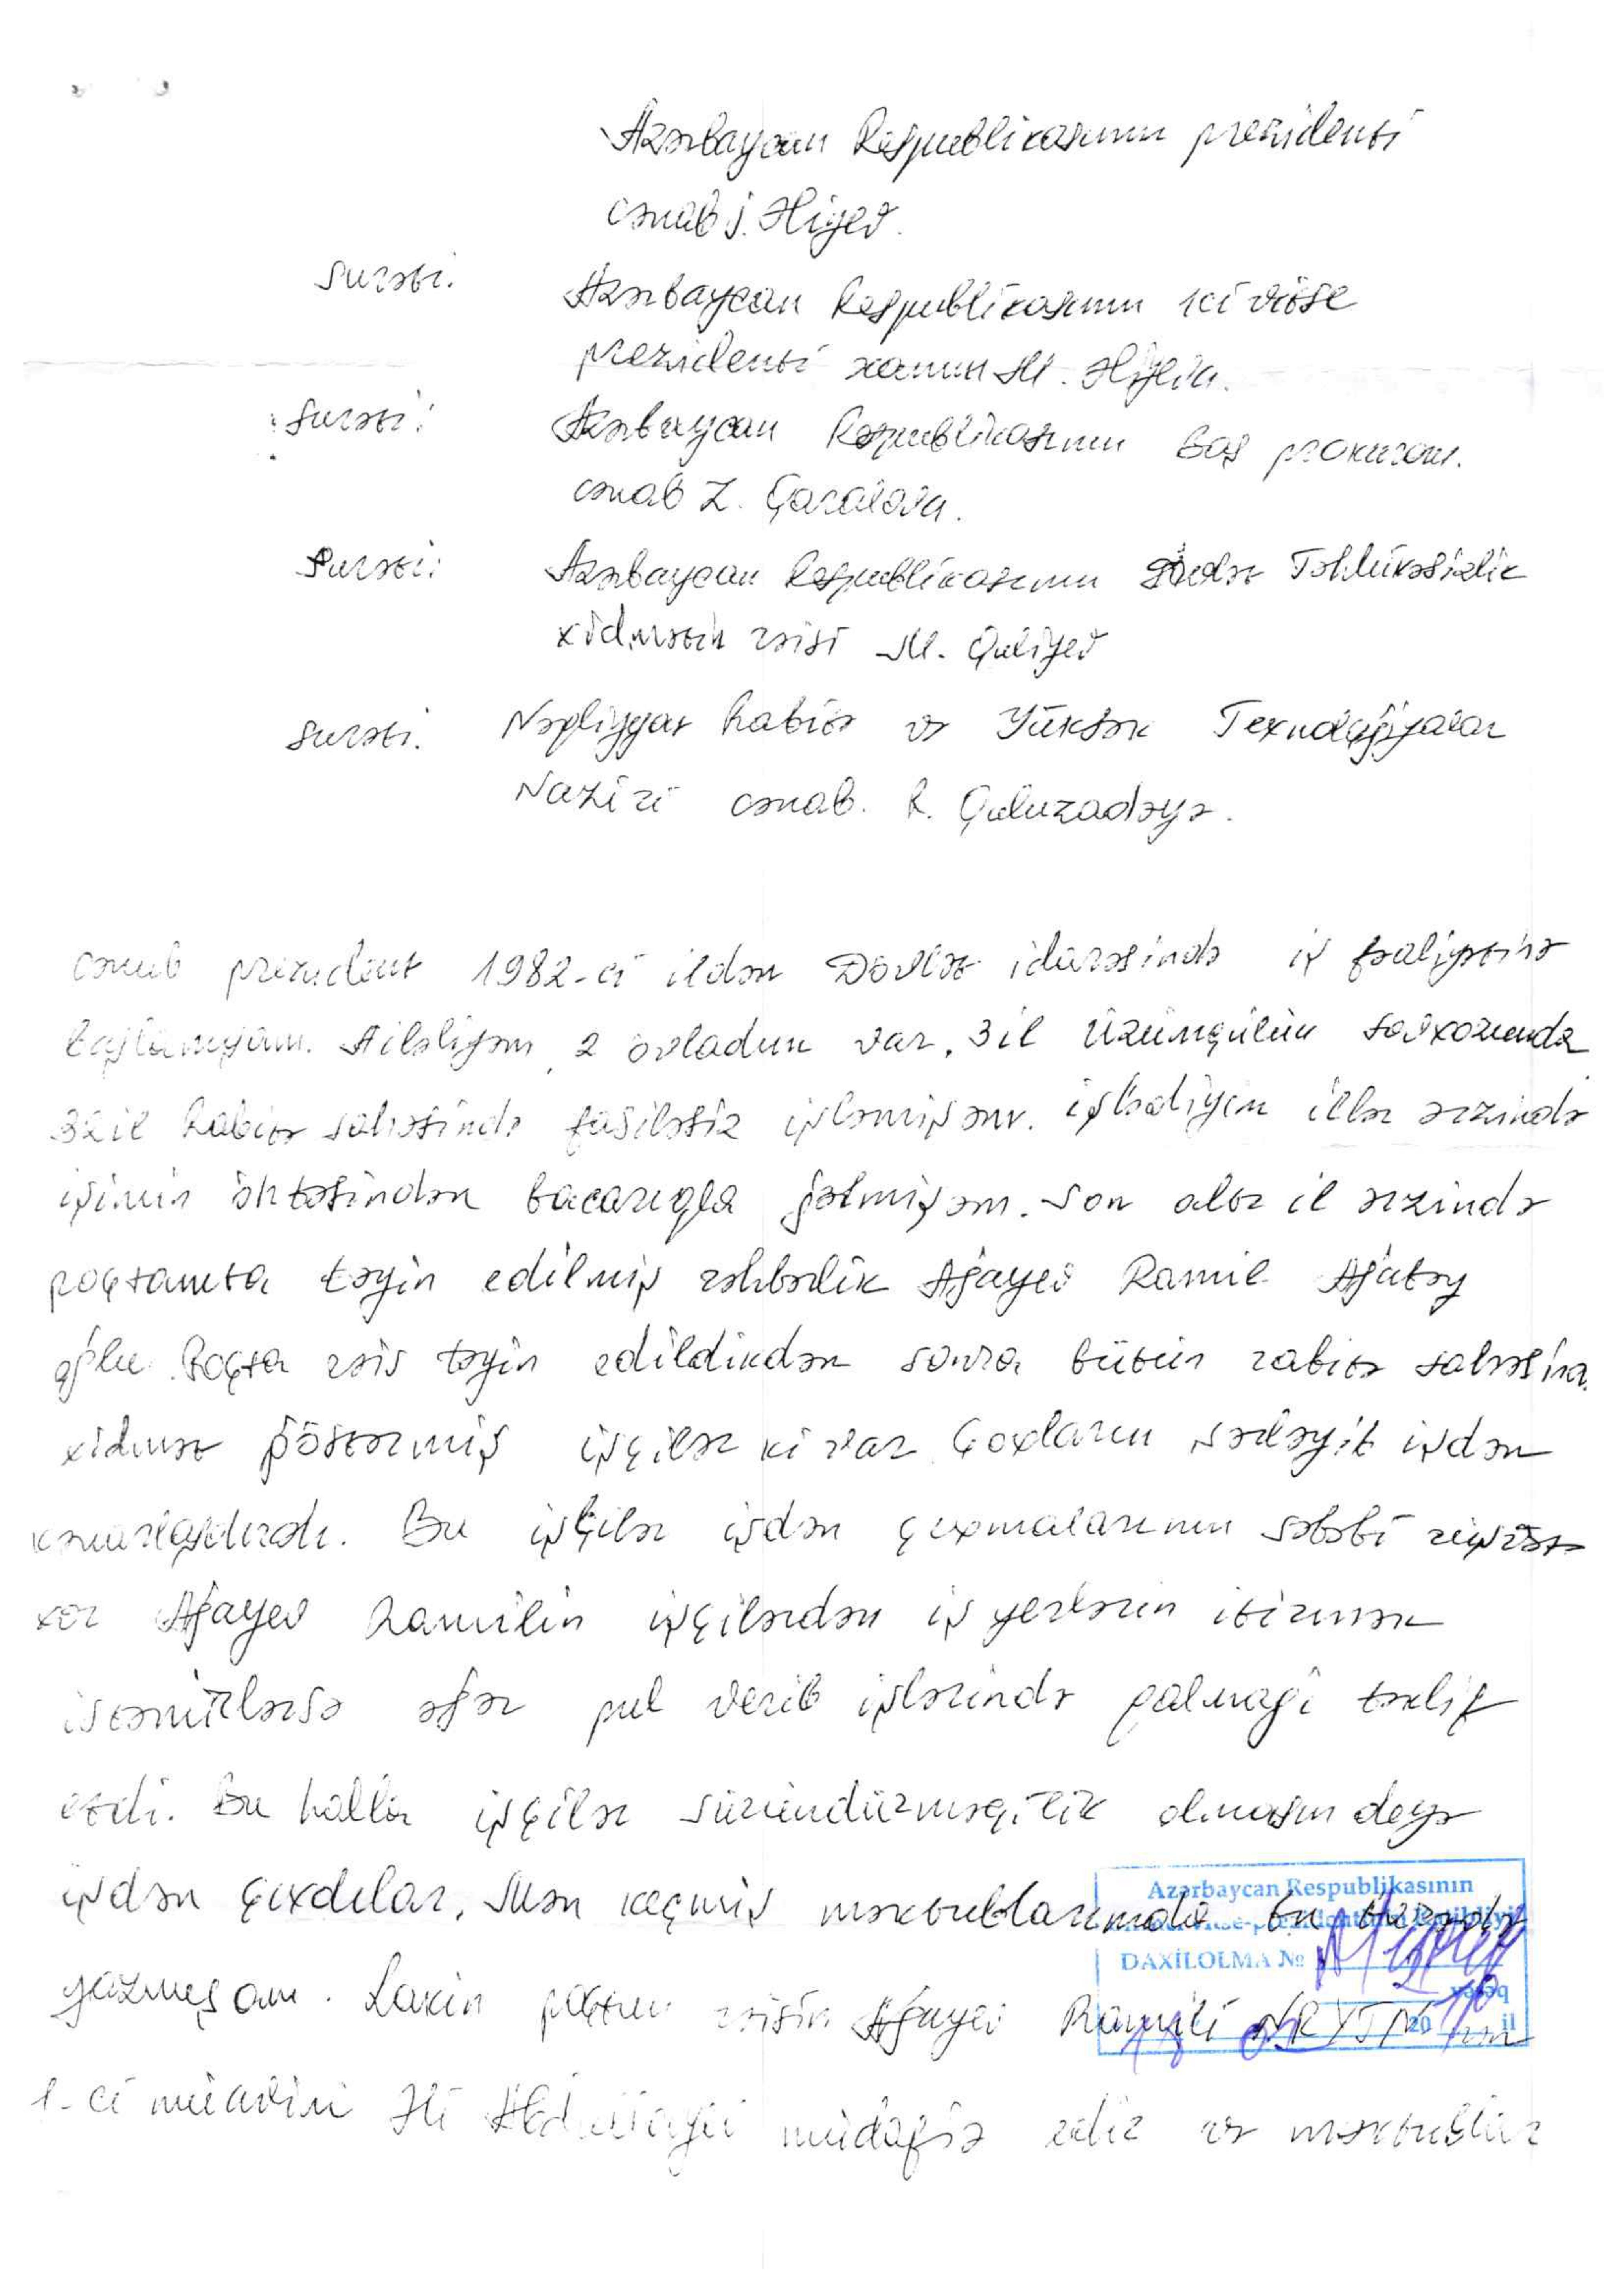 Azərbaycan Respublikasının prezidenti
cənab İ. Əliyev.
Surəti. Azərbaycan Respublikasının 1ci vitse
prezidenti xanım M. Əliyeva.
Surəti: Azərbaycan Respublikasının Baş prokuroru.
cənab Z. Qaralova.
Surəti: Azərbaycan Respublikasının Dövlət Təhlükəsizlik
xidmətin rəisi M. Quliyev
Surəti. Nəqliyyat Rabitə və Yüksək Texnologiyalar
Naziri cənab. R. Quluzadəyə.
cənab prezident 1982-ci ildən Dövlət idarəsində iş fəaliyətinə
başlamışam. Ailəliyəm, 2 övladım var. 3 il Üzümçülük sovxozunda
32 il Rabitə sahəsində fasiləsiz işləmişəm. işlədiyim illər ərzində
işimin öhtəsindən bacarıqla gəlmişəm. Son altı il ərzində
poçtamta təyin edilmiş rəhbərlik Ağayev Ramil Ağabəy
oğlu. Poçta rəis təyin edildikdən sonra bütün rabitə sahəsinə
xidmət göstərmiş işçilər ki var çoxların şərləyib işdən
kənarlaşdırdı. Bu işçilər işdən çıxmalarının səbəbi rüşvət
xor Ağayev Ramilin işçilərdən iş yerlərin itirmək
istəmirlərsə əgər pul verib işlərində qalmağı təklif
etdi. Bu halla işçilər süründürməçilik olmasın deyə
işdən çıxdılar. Mən keçmiş məktublarımda bu barədə
yazmışam. Lakin poçtun rəisin Ağayev Ramili NRYTN nın
1-ci müavini Əli Abdullayev müdafiə edir və məktublar
Azərbaycan Respublikasının
DAXİLOLMA №
vərəq
20 il